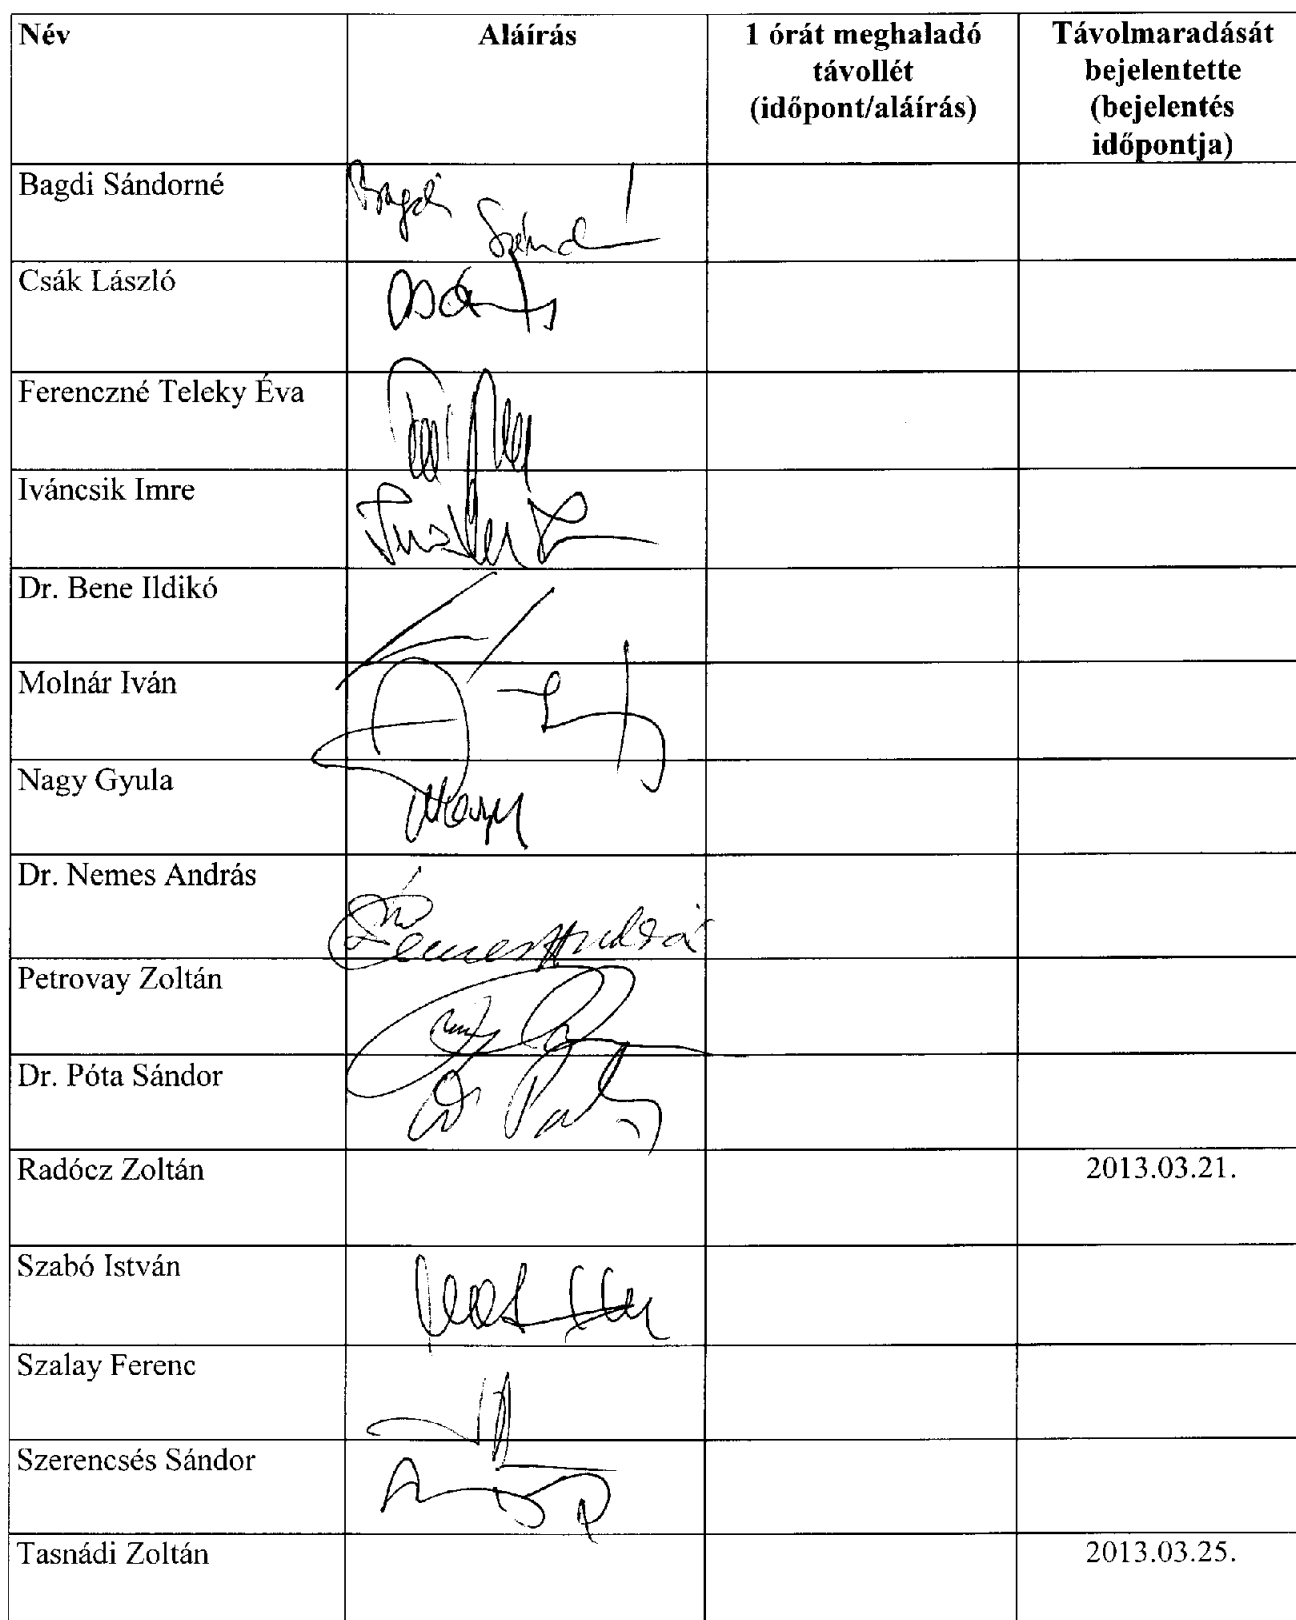 Név Aláírás 1 órát meghaladó Távolmaradását
távollét bejelentette
(időpont/aláírás) (bejelentés
időpontja)
Bagdi Sándorné
Bagdi
Csák László
Ferenczné Teleky Éva
Iváncsik Imre
Dr. Bene Ildikó
Molnár Iván
Nagy Gyula
Nagy
Dr. Nemes András
Petrovay Zoltán
Dr. Póta Sándor
Radócz Zoltán 2013.03.21.
Szabó István
Szalay Ferenc
Szerencsés Sándor
Tasnádi Zoltán 2013.03.25.